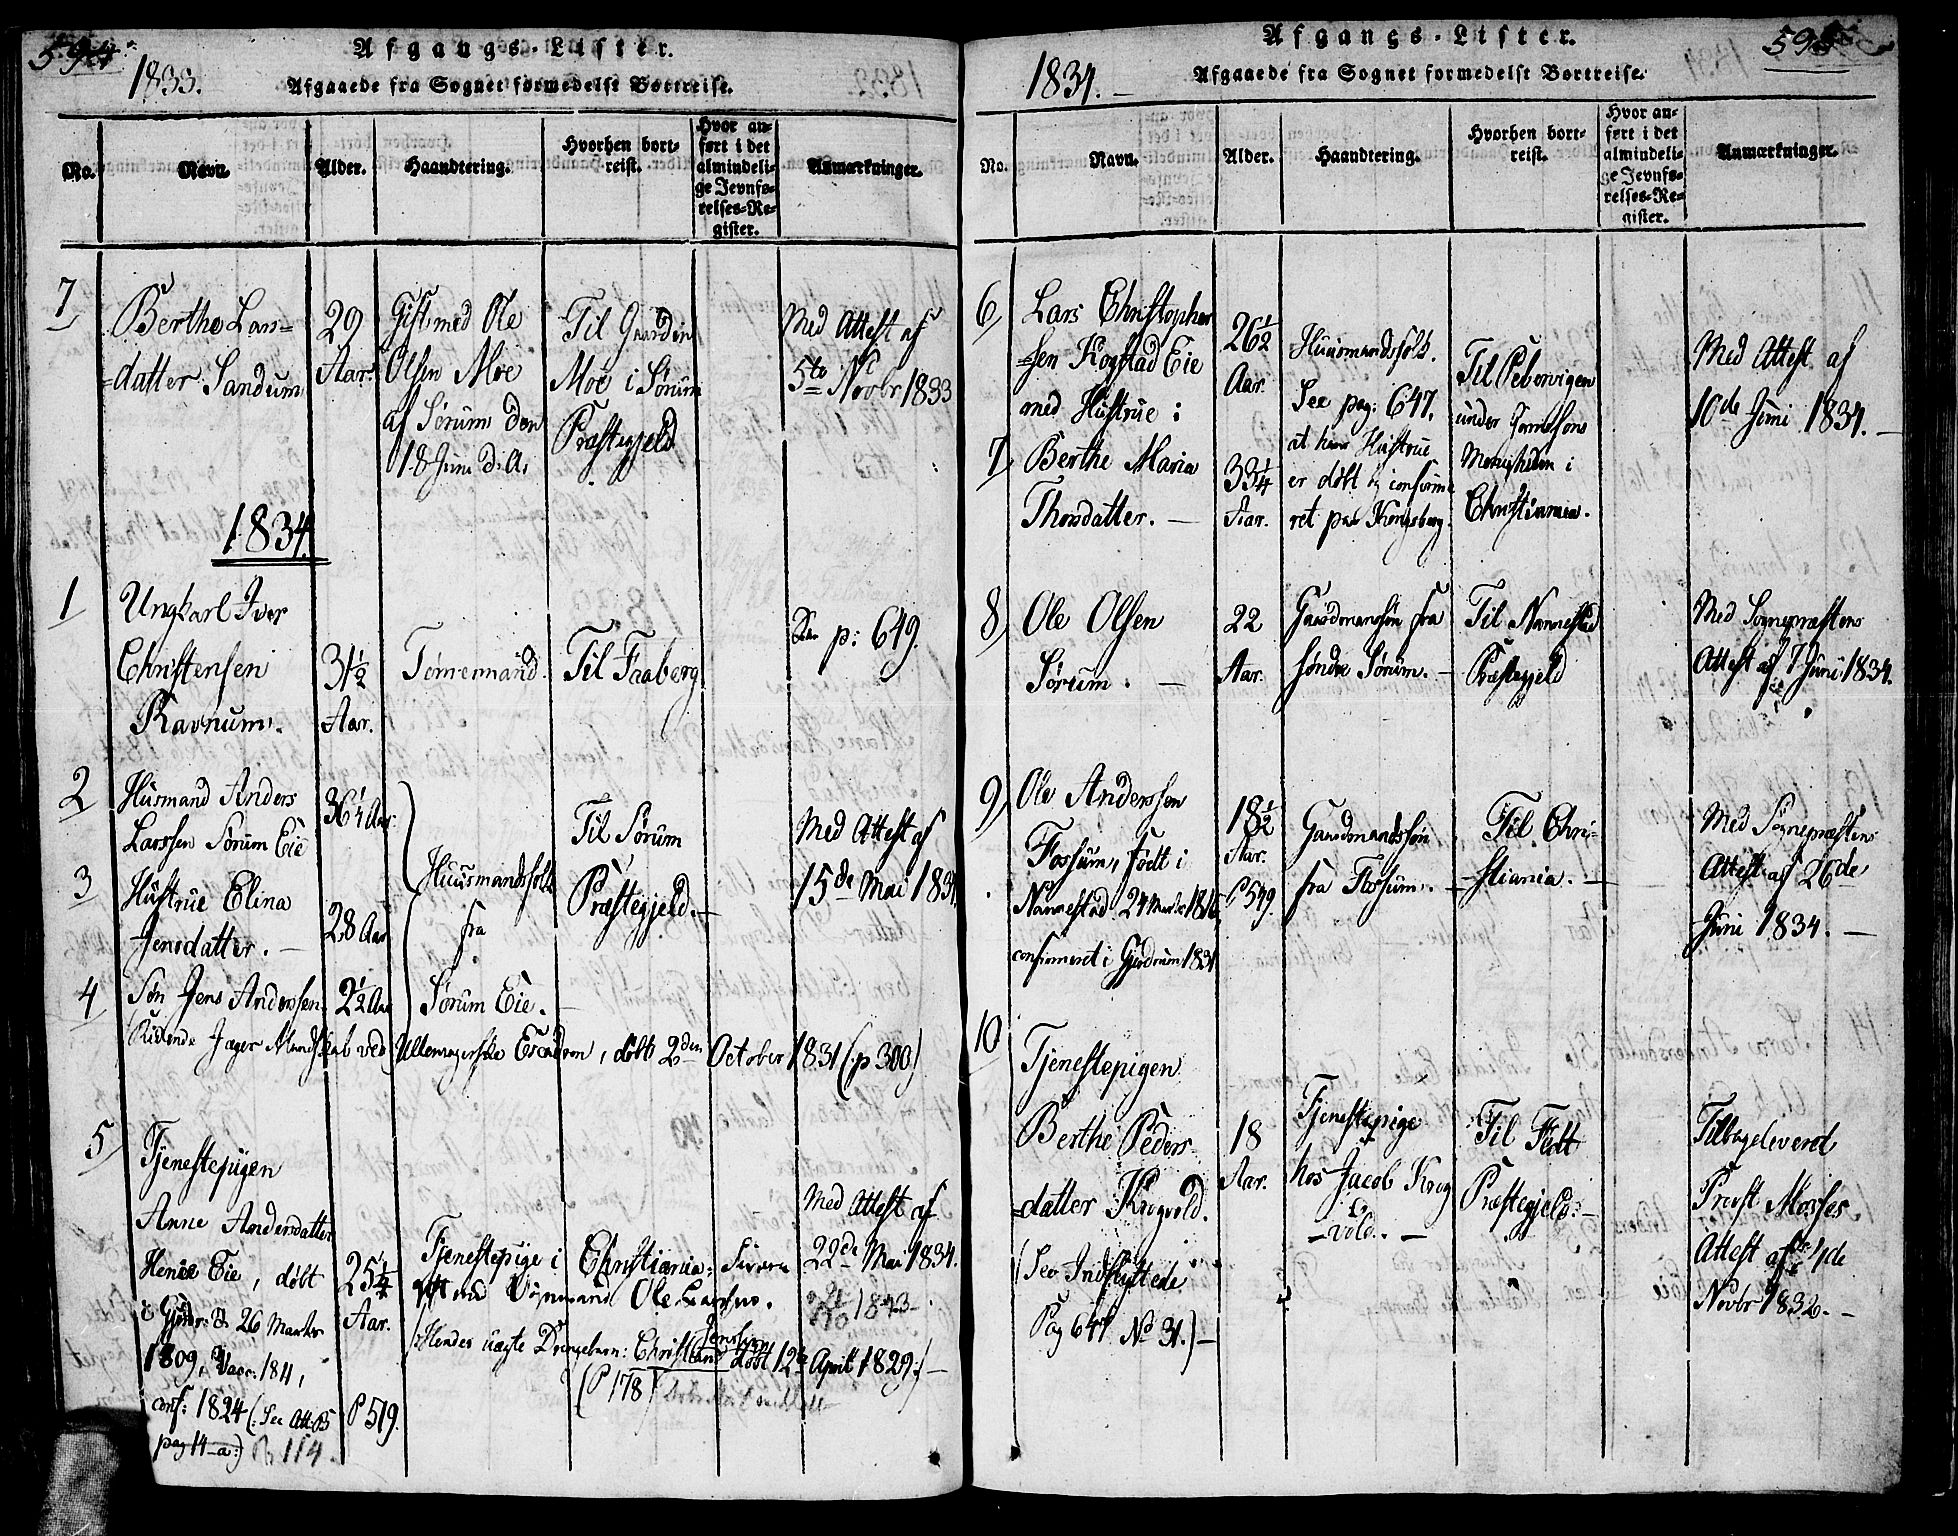 594.
Afgangs-Lister.
1833.
Afgaaede fra Sognet formedelst Bortreise.
No.
Navn.
Alder.
Haandtering.
Hvorhen bort-
reist.
Hvor an-
ført i det
almindeli-
ge Jevnfø-
relses-Re-
gister.
Anmærkninger.
7
Berthe Lars=
=datter Sandum
29
Aar.
Gift med Ole
Olsen Moe
af Sørum den
18 Juni d. A.
Til Gaarden
Moe i Sørum
Præstegjeld
Med Attest af
5te Novbr 1833
1834.
1
Ungkarl Iver
Christensen
Ravnum.
31½
Aar.
Tømermand.
Til Faaberg
See p: 649.
2
Husmand Anders
Larssen Sørum Eie
36¼ Aar.
3
Hustrue Elina
Jensdatter. —
28 Aar
4
Søn Jens Anderssen
2½ Aar
Huusmandsfolk
fra
Sørum Eie. —
Til Sørum
Præstegjeld. —
Med Attest af
15de Mai 1834.
Ridende Jæger Mandskab ved Ullensagerske Escadron, døbt 2den October 1831 (p 300)
5
Tjenestepigen
Anne Andersdatter
Eie, døbt
26 Marts
1809, Vacc: 1811,
conf: 1824 (: See Att: B
pag 14-a:) P. 114.
25¼
Aar.
P 519.
Tjenestepige i
Christiania:
Med Attest af
22de Mai 1834.
Ole Larssen.
1843
Hendes uægte Drengebarn: Christian
Jenssen døbt 12te April 1829:) —
(P 178)
595
Afgangs-Lister.
1834. —
Afgaaede fra Sognet formedelst Bortreise.
No.
Navn.
Alder.
Haandtering.
Hvorhen bort-
reist.
Hvor an-
ført i det
almindeli-
ge Jevnfø-
relses-Re-
gister.
Anmærkninger.
6
Lars Christopher
=sen Kogstad Eie
med Hustrue:
26½
Aar.
7
Berthe Maria
Thorsdatter. —
33¼
Aar.
Huusmandsfolk.
See pag: 647.
at hans Hustrue
er døbt og confirme
ret paa Kongsberg.
Til Pebervigen
under
Menigheden i
Christiania.
Med Attest af
10de Juni 1834. —
8
Ole Olsen
Sørum. —
22
Aar.
Gaardmandssøn fra
søndre Sørum. —
Til Nannestad
Præstegjeld
Med Sognepræstens
Attest af 7 Juni 1834.
9
Ole Anderssen
Fossum, født i
Nannestad 24 1816
confirmeret i Gjerdrum 1831
18½
Aar.
P 549.
Gaardmandssøn
fra Fossum. —
Til Chri-
stiania. —
Med Sognepræstens
Attest af 26de
Juni 1834. —
10
Tjenestepigen
Berthe Peders-
=datter Krogvold.
(See Indflyttede
Pag 647 No 31.) —
18
Aar.
Tjenestepige
hos Jacob Krog
-vold. —
Til Fedt
Præstegjeld. —
Tilbageleveret
Provst Mosses
Attest af 4de
Novbr 1832. —